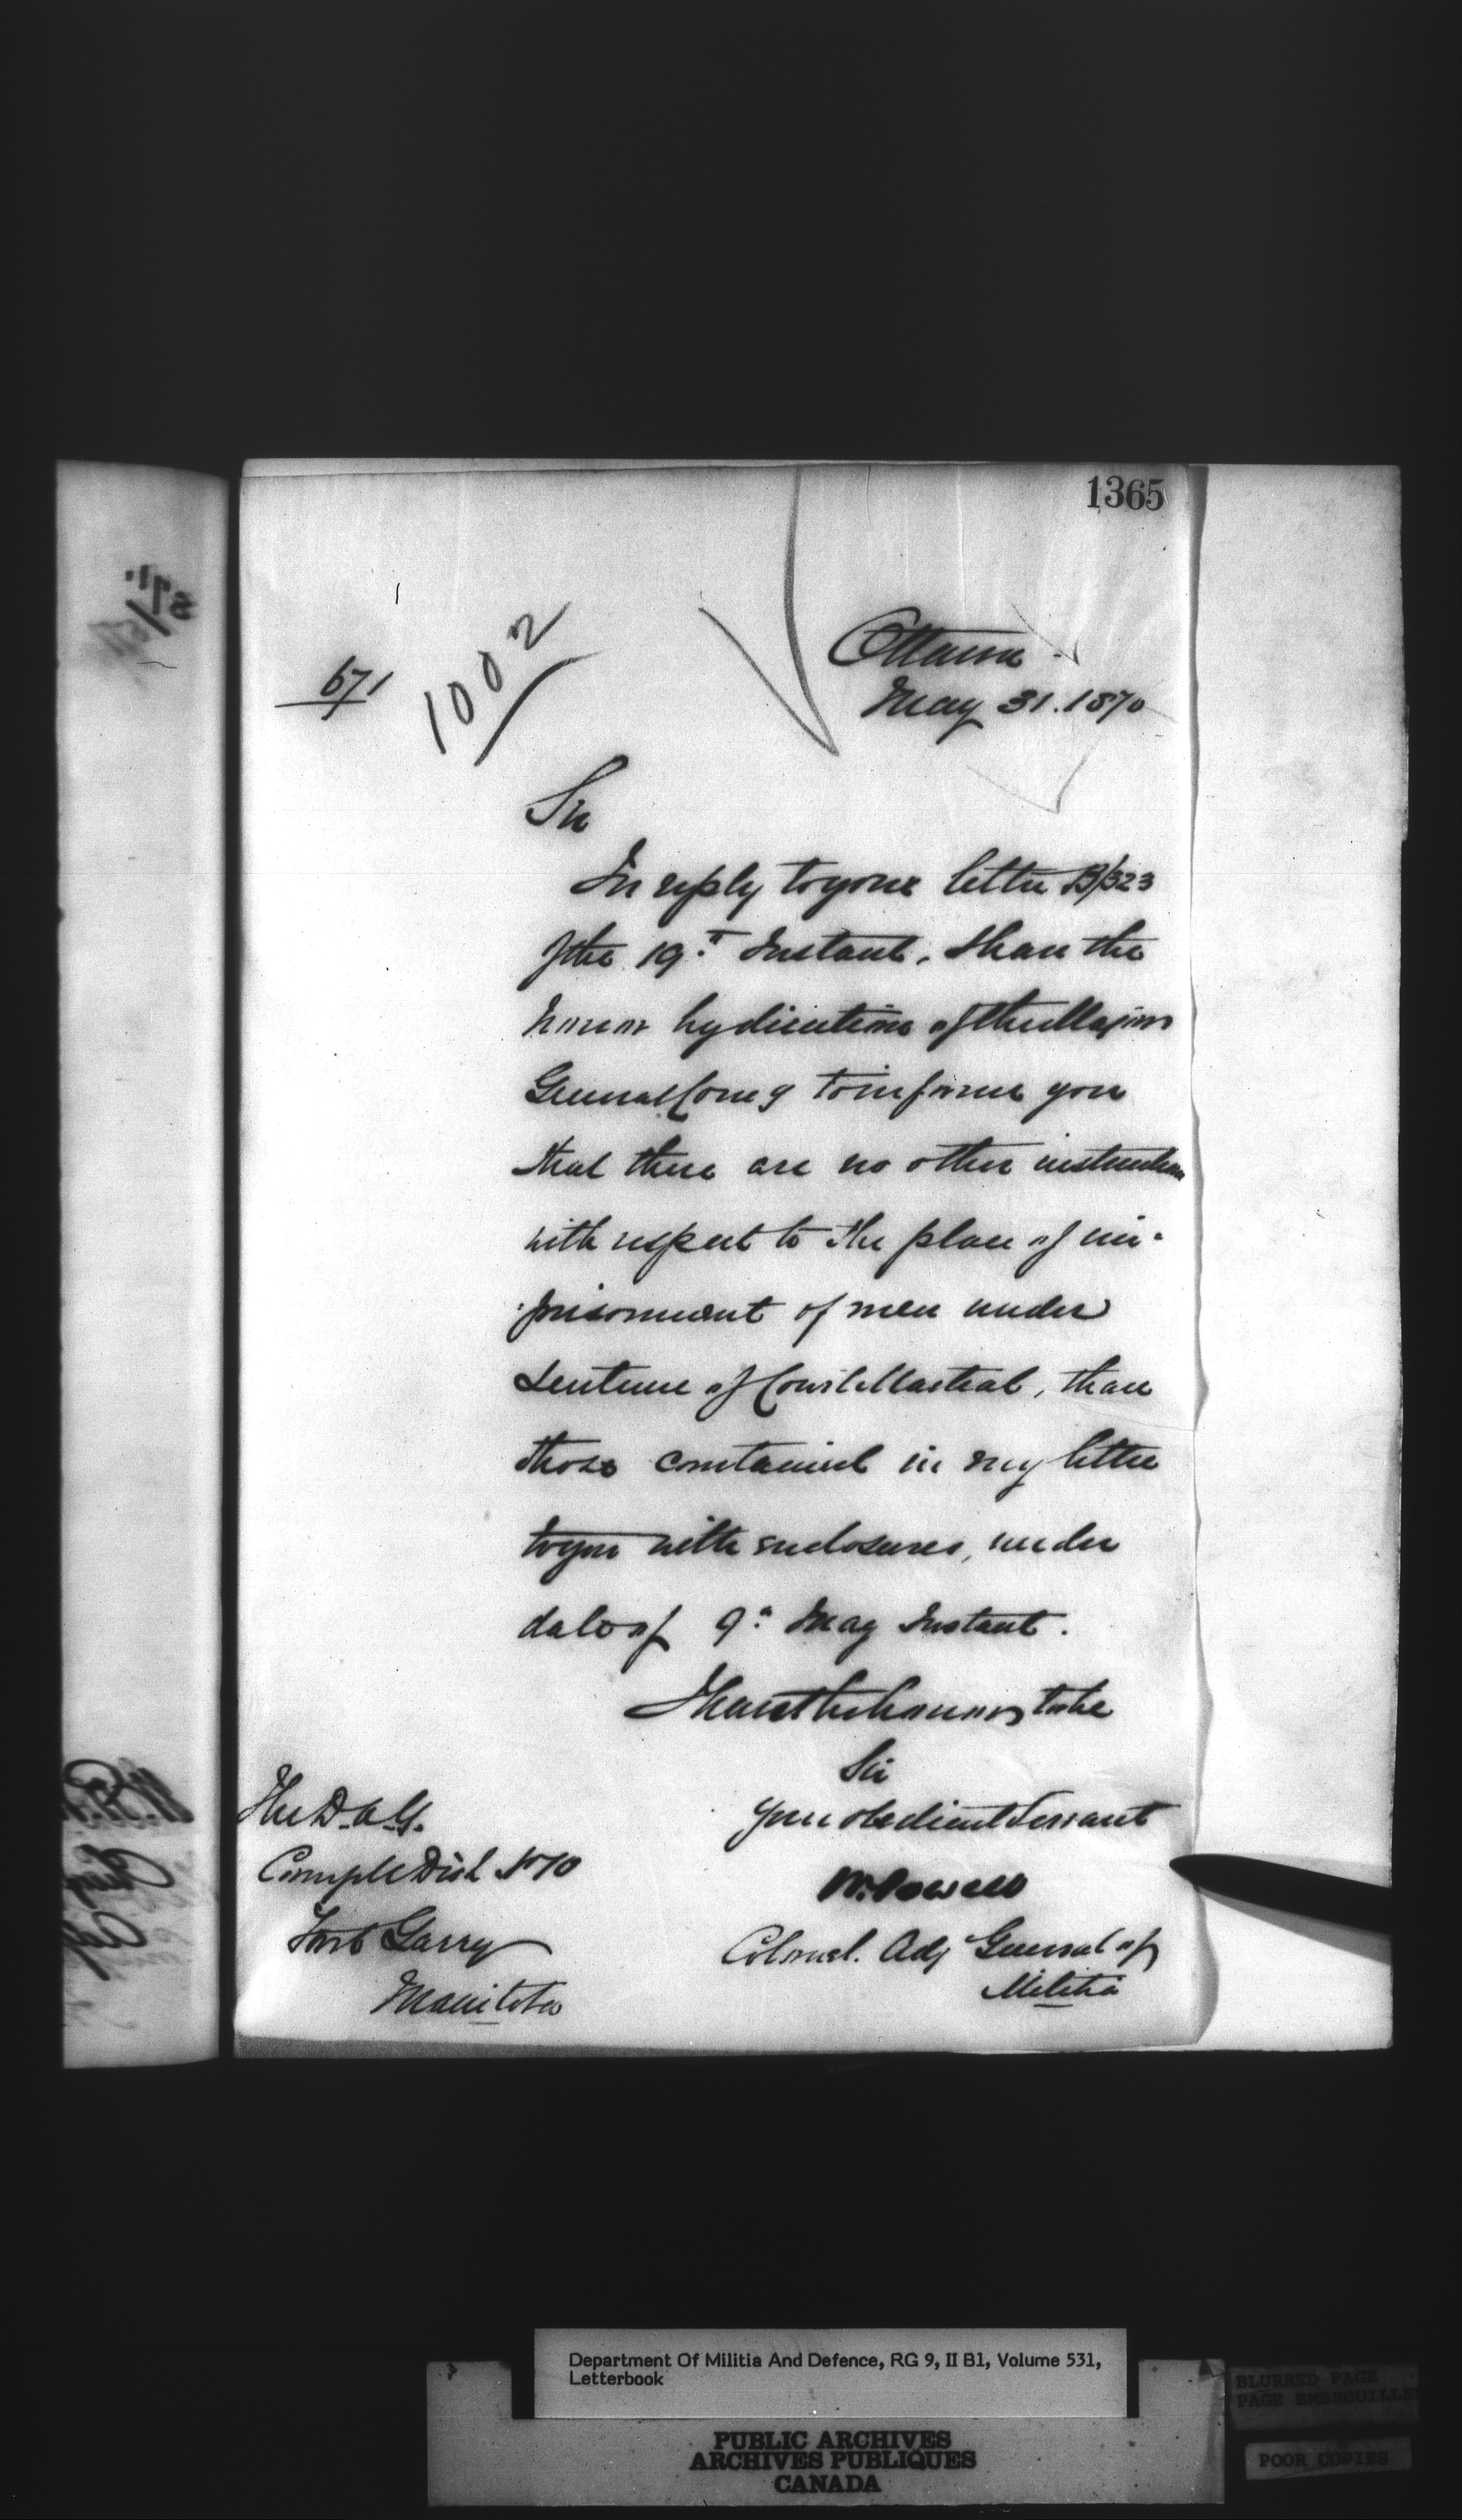 1365
671
1002
Ottawa
May 31. 1870
Sir
In reply to your letter B/323
of the 19th Instant, I have the
honor by direction of the Major
General Comg to inform you
that there are no other instructions
with respect to the place of im-
-prisonment of men under
Sentence of Court Martial, than
those contained in my letter
to you with enclosures, under
date of 9th May Instant.
I have the honor to be
Sir
Your obedient Servant
W. Powell
Colonel. Adj General of
Militia
The D.A.G.
Fort Garry
Manitoba
Department Of Militia And Defence, RG 9, II B1, Volume 531,
Letterbook
PUBLIC ARCHIVES
ARCHIVES PUBLIQUES
CANADA
BLURRED PAGE
PAGE EMBROUILLEE
POOR COPIES